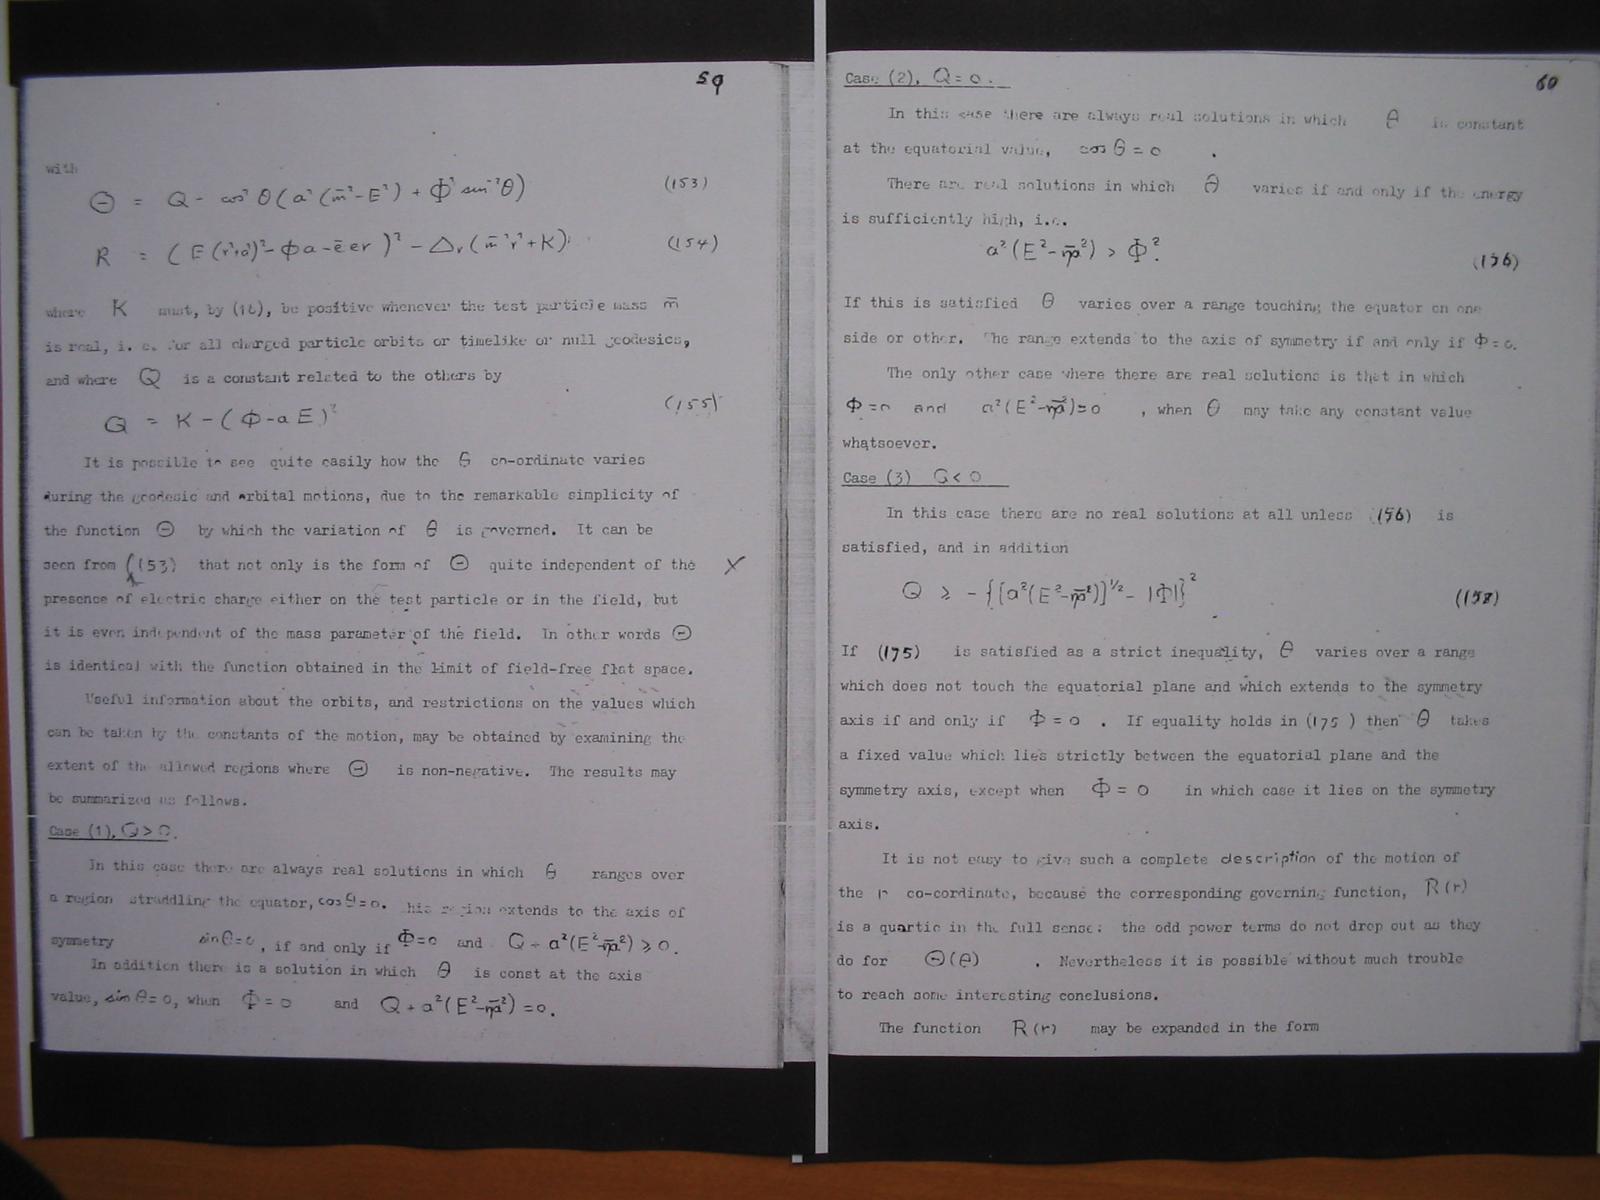 59
with
Θ = Q - cos²θ(a²(m̄²-E²) + Φ² sin⁻²θ) (153)
R = (E(r²+a²) - Φa - ēer)² - Δr(m̄²r²+K) (154)
where K must, by (16), be positive whenever the test particle mass m̄
is real, i.e. for all charged particle orbits or timelike or null geodesics,
and where Q is a constant related to the others by
Q = K - (Φ-aE)² (155)
It is possible to see quite easily how the θ co-ordinate varies
during the geodesic and orbital motions, due to the remarkable simplicity of
the function Θ by which the variation of θ is governed. It can be
seen from (153) that not only is the form of Θ quite independent of the X
presence of electric charge either on the test particle or in the field, but
it is even independent of the mass parameter of the field. In other words Θ
is identical with the function obtained in the limit of field-free flat space.
Useful information about the orbits, and restrictions on the values which
can be taken by the constants of the motion, may be obtained by examining the
extent of the allowed regions where Θ is non-negative. The results may
be summarized as follows.
Case (1), Q>0.
In this case there are always real solutions in which θ ranges over
a region straddling the equator, cosθ=0. This region extends to the axis of
symmetry sinθ=0, if and only if Φ=0 and Q + a²(E²-m̄²) ≥ 0.
In addition there is a solution in which θ is const at the axis
value, sinθ=0, when Φ=0 and Q + a²(E²-m̄²) = 0.
60
Case (2), Q=0.
In this case there are always real solutions in which θ is constant
at the equatorial value, cosθ=0 .
There are real solutions in which θ varies if and only if the energy
is sufficiently high, i.e.
a²(E²-m̄²) > Φ². (156)
If this is satisfied θ varies over a range touching the equator on one
side or other. The range extends to the axis of symmetry if and only if Φ=0.
The only other case where there are real solutions is that in which
Φ=0 and a²(E²-m̄²)=0 , when θ may take any constant value
whatsoever.
Case (3) Q<0
In this case there are no real solutions at all unless (156) is
satisfied, and in addition
Q ≥ -{[a²(E²-m̄²)]^1/2 - |Φ|}² (158)
If (175) is satisfied as a strict inequality, θ varies over a range
which does not touch the equatorial plane and which extends to the symmetry
axis if and only if Φ=0 . If equality holds in (175) then θ takes
a fixed value which lies strictly between the equatorial plane and the
symmetry axis, except when Φ=0 in which case it lies on the symmetry
axis.
It is not easy to give such a complete description of the motion of
the r co-cordinate, because the corresponding governing function, R(r)
is a quartic in the full sense: the odd power terms do not drop out as they
do for Θ(θ) . Nevertheless it is possible without much trouble
to reach some interesting conclusions.
The function R(r) may be expanded in the form